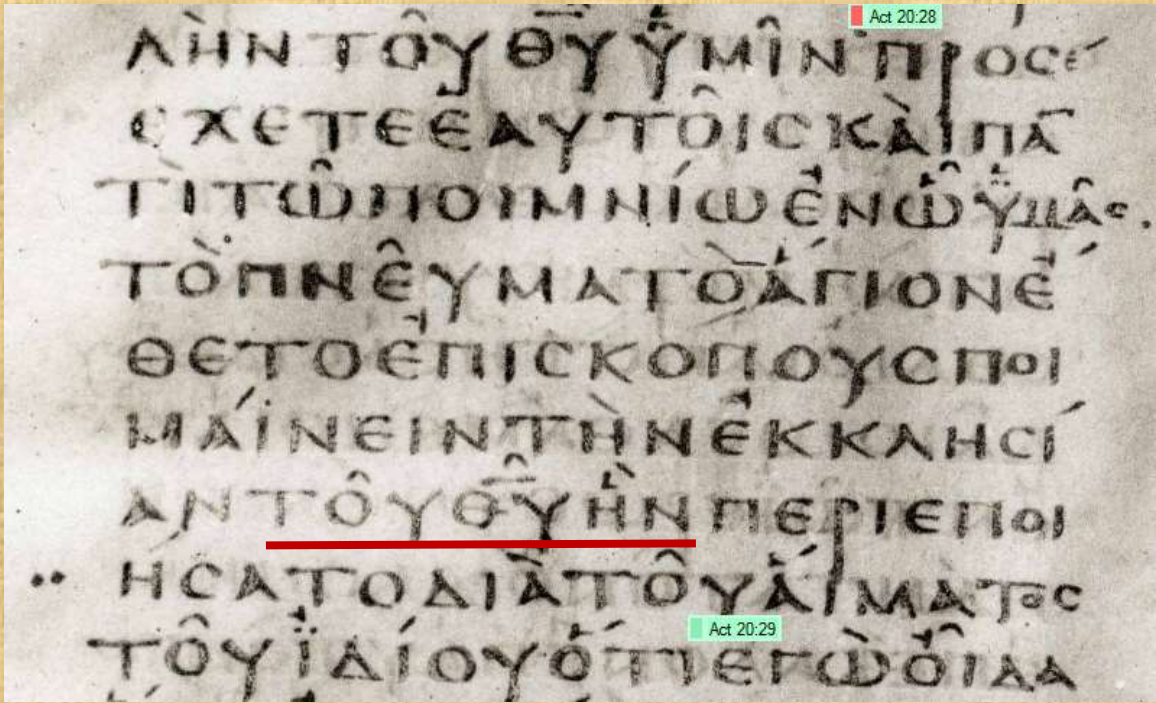 Act 20:28
ΛΗΝΤΟΥΘ̅Υ̅ΥΜΙΝΠΡΟϹΕ
ΕΧΕΤΕΕΑΥΤΟΙϹΚΑΙΠΑ̅
ΤΙΤΩΠΟΙΜΝΙΩΕΝΩΥΜΑϹ.
ΤΟΠΝΕΥΜΑΤΟΑΓΙΟΝΕ
ΘΕΤΟΕΠΙϹΚΟΠΟΥϹΠΟΙ
ΜΑΙΝΕΙΝΤΗΝΕΚΚΛΗϹΙ
ΑΝΤΟΥΘ̅Υ̅ΗΝΠΕΡΙΕΠΟΙ
ΗϹΑΤΟΔΙΑΤΟΥΑΙΜΑΤΟϹ
Act 20:29
ΤΟΥΪΔΙΟΥΟΤΙΕΓΩΟΙΔΑ